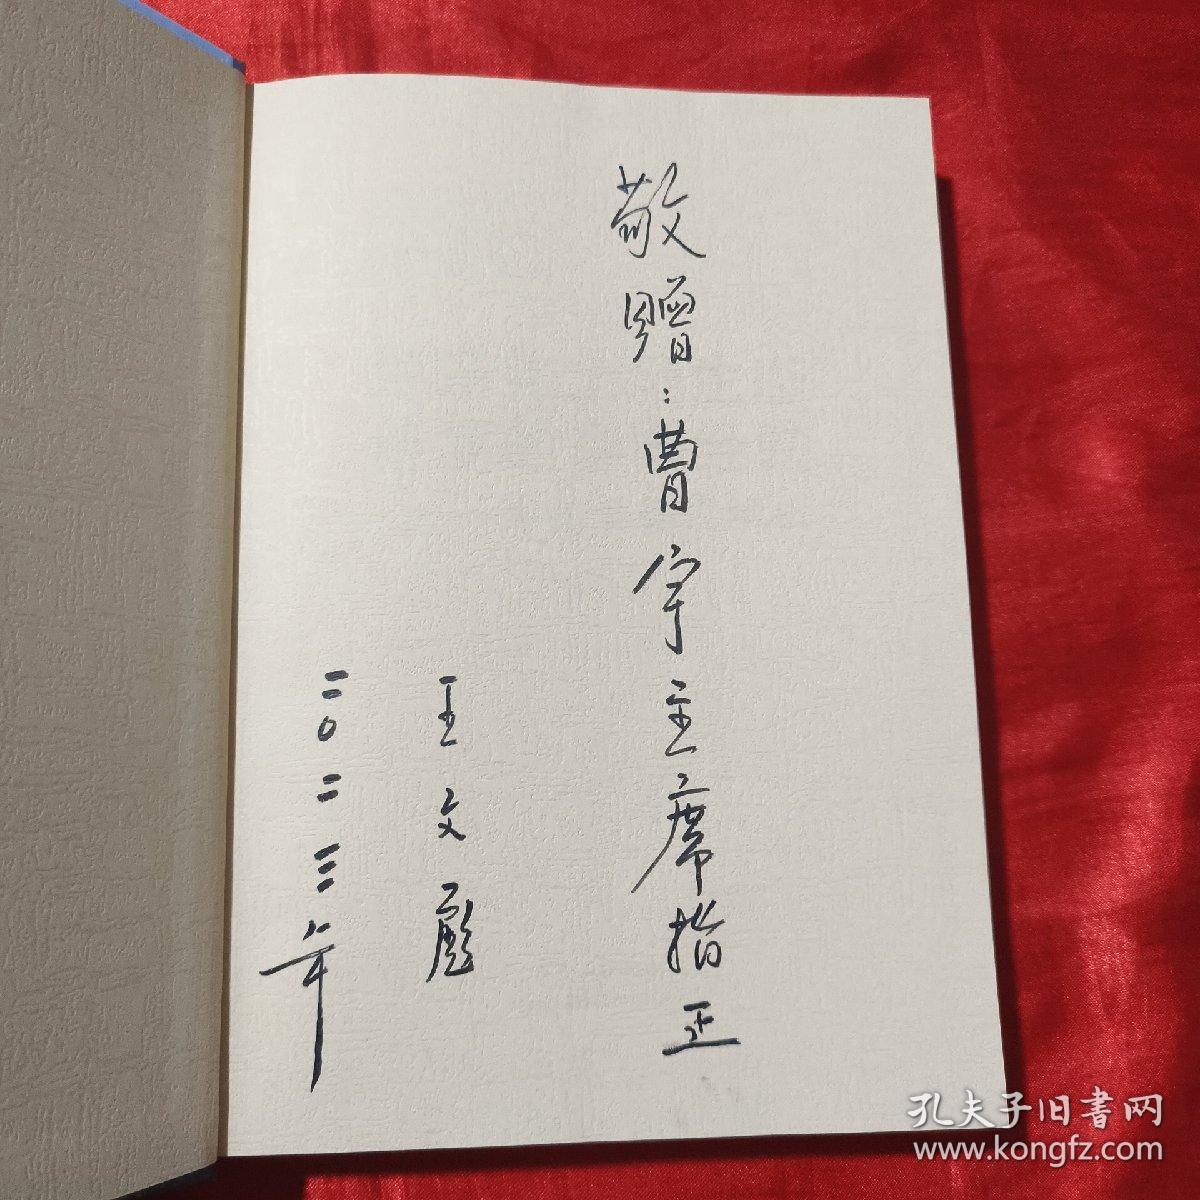 敬赠：曹宇主席指正
王文彪
二〇二三年
孔夫子旧书网
www.kongfz.com